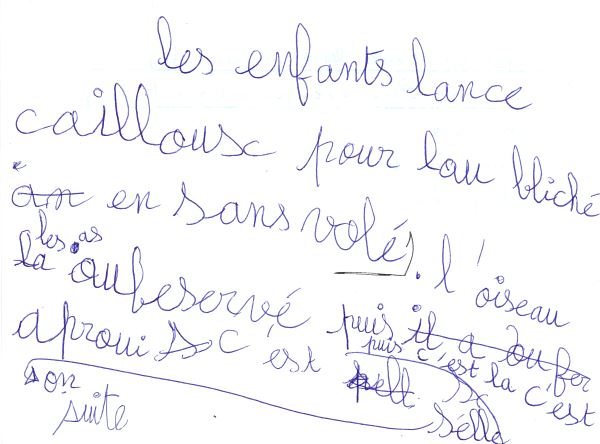 les enfants lance
cailloux pour lau bliché
an en sans volé. l'oiseau
les as
la oubeservé puis il a oufer
aproui c'est puis c'est la c'est
son
suite sella